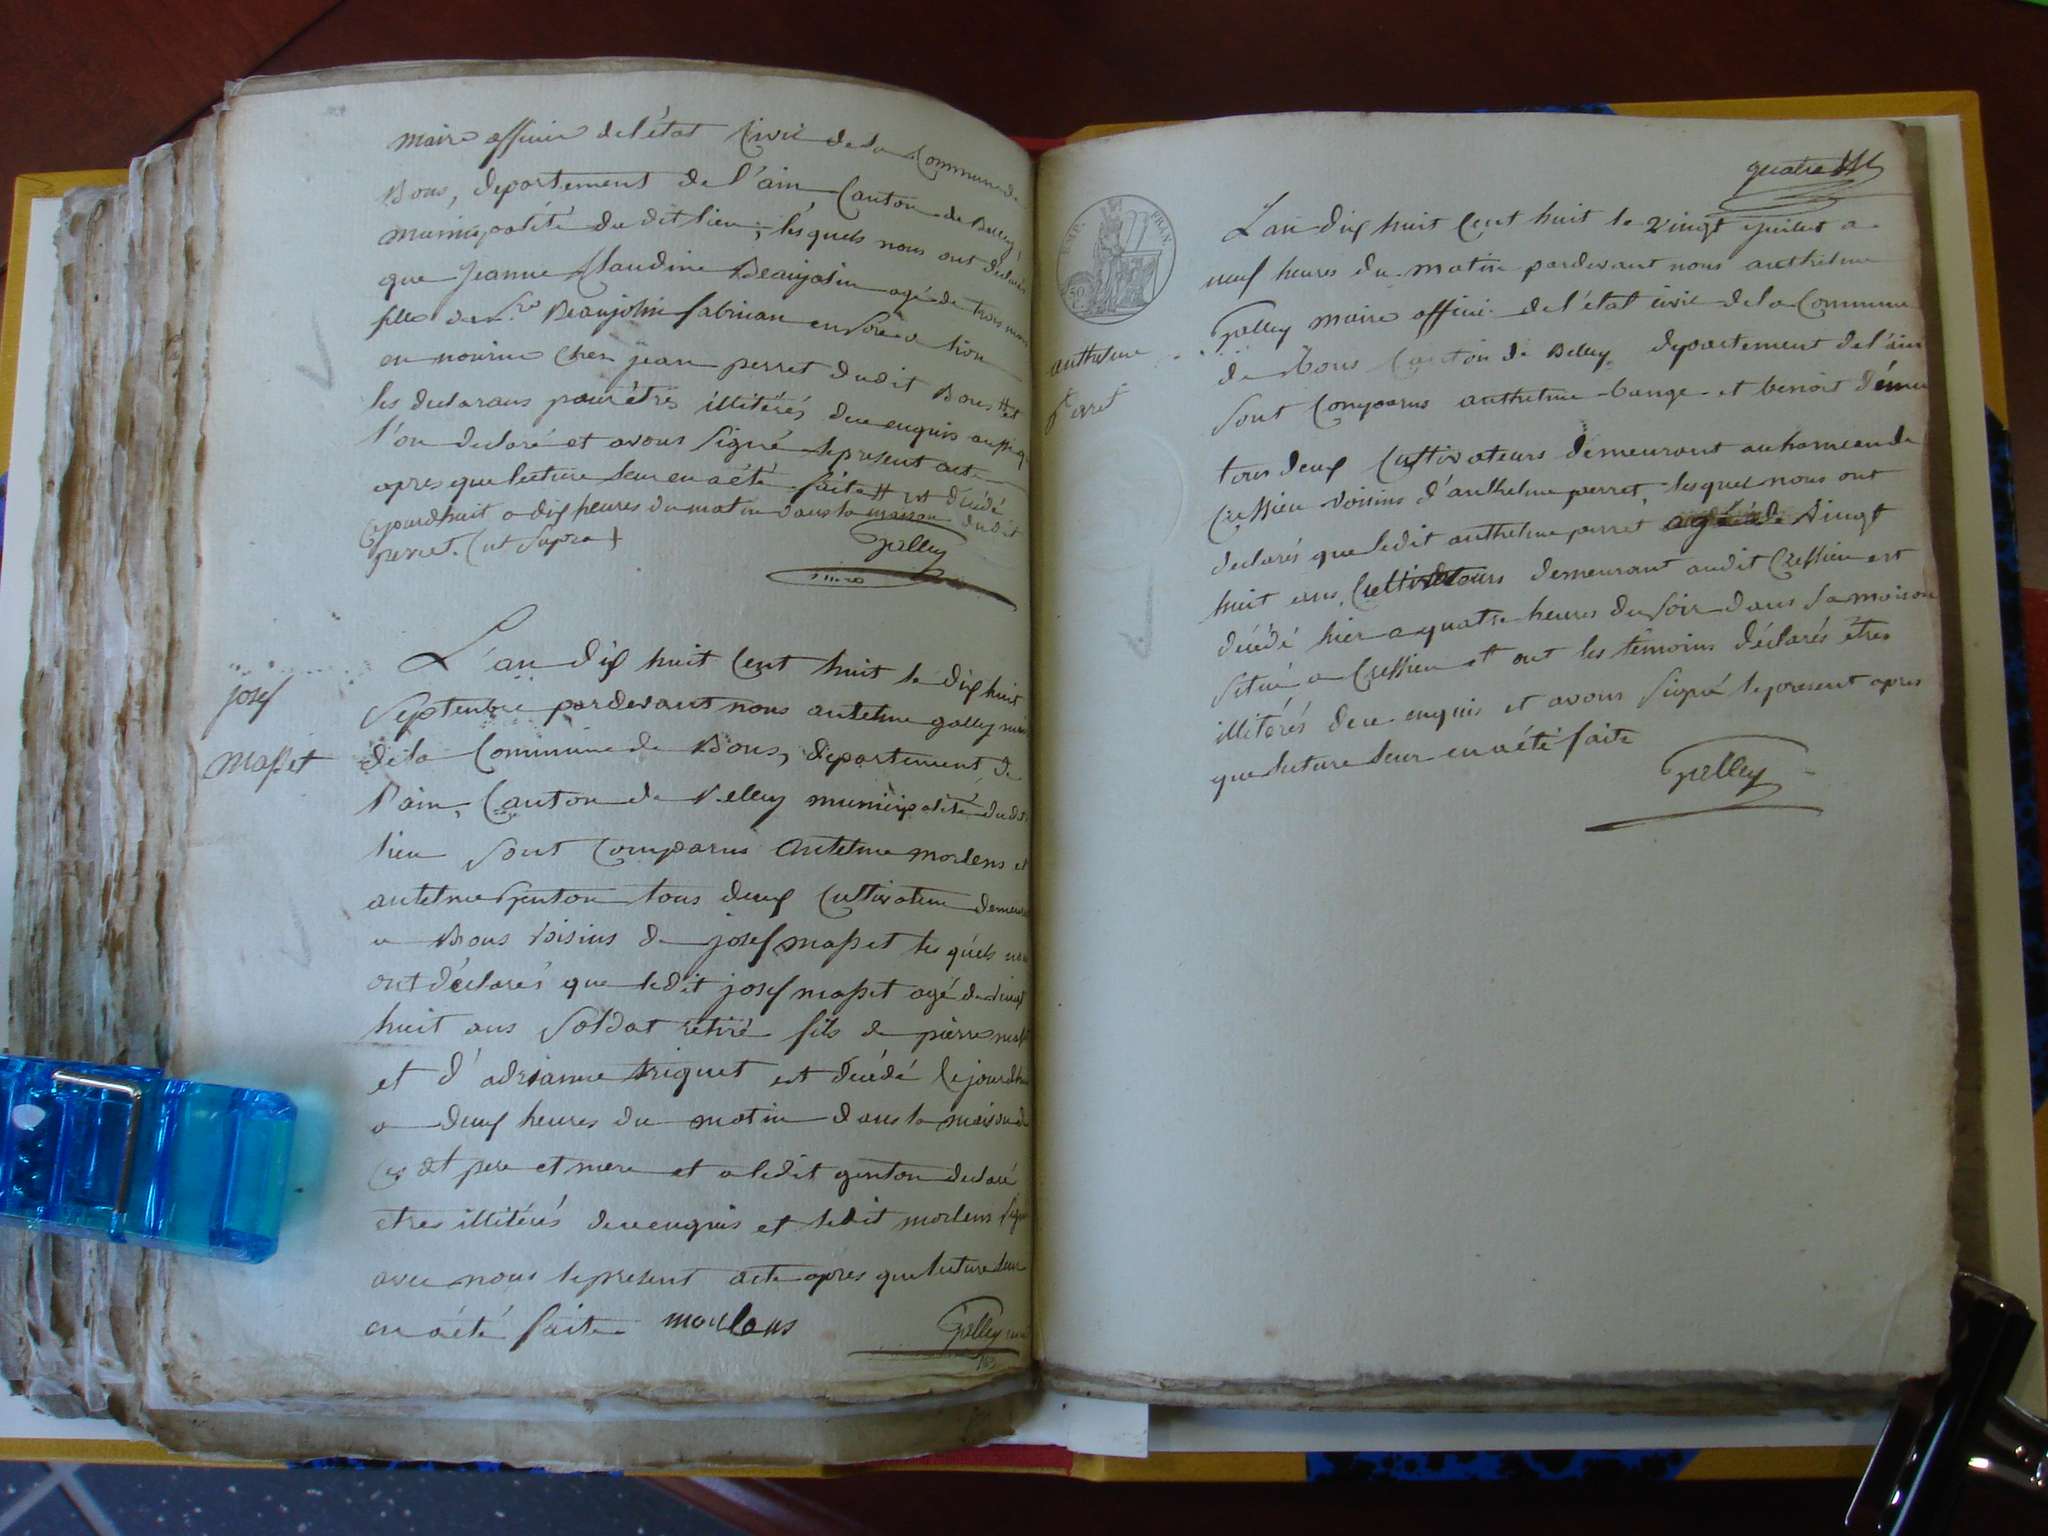 maire officier de l'état Civil de la Commune de
Bons, departement de l'ain, Canton de Belley
municipalité du dit lieu; lesquels nous ont declarés
que Jeanne Claudine Beaujolin agé de trois mois
fille de Sr. Beaujolin fabrican en Soie a lion
en nourice Chez jean perret dudit Bons # et
les declarans pour êtres illitérés de ce enquis ainsi q
l'on declaré et avons Signé le present acte
apres que lecture leur en a été faite # est décédé
Cejourdhuit a dix heures du matin dans la maison dudit
perret. Cut Supra +
Galley
maire
L'an dix huit Cent huit le dix huit
Septembre pardevant nous antelme galley maire
josef
Masset
de la Commune de Bons, departement de
l'ain, Canton de Belley municipalité dudit
lieu Sont Comparus Antelme morlens et
antelme Genton tous deux Cultivateur demeurt
a Bons Voisins de josef masset les quels nous
ont déclarés que ledit josef masset agé de Vingt
huit ans Soldat retiré fils de pierre masset
et d'adrianne triquet est décédé Cejourdhui
a deux heures du matin dans la maison de
Ces dt pere et mere et a ledit genton declaré
etres illitérés de ce enquis et ledit morlens Signé
avec nous le present acte apres que lecture leur
en a été faite morlens
Galley maire
quatre
L'an dix huit Cent huit le vingt juillet a
neuf heures du matin pardevant nous anthelme
Galley maire officier de l'état civil de la Commune
de Bons Canton de Belley departement de l'ain
anthelme
perret
Sont Comparus anthelme bange et benoit
tous deux Cultivateurs demeurant au hameau de
Cressieu voisins d'anthelme perret, lesquel nous ont
declarés que ledit anthelme perret agé de Vingt
huit ans, Cultivateurs demeurant audit Cressieu est
décédé hier a quatre heures du Soir dans Sa maison
Située a Cressieu et ont les témoins déclarés êtres
illitérés de ce enquis et avons Signé le present apres
que lecture leur en a été faite
Galley